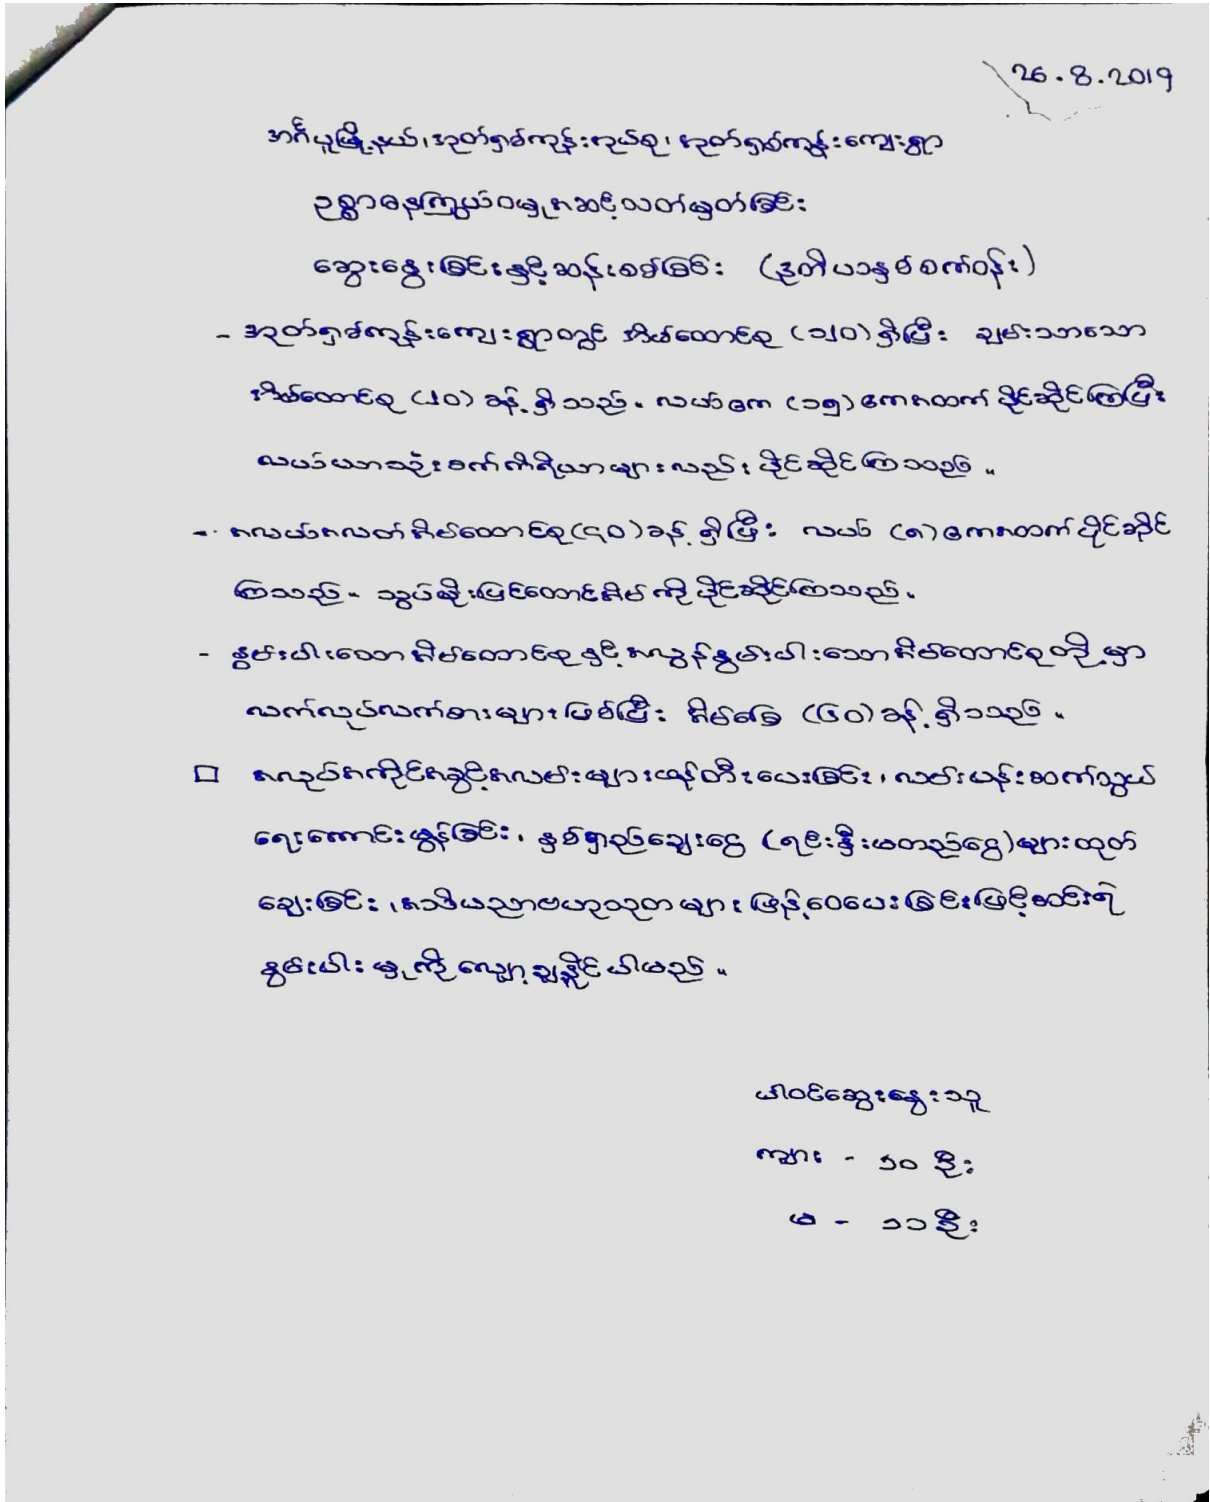 26.8.2019
အင်္ဂပူမြို့နယ်၊အုတ်ရှစ်ကုန်းအုပ်စု၊အုတ်ရှစ်ကုန်းကျေးရွာ
ဥစ္စာဓနကြွယ်ဝမှုအဆင့်သတ်မှတ်ခြင်း
ဆွေးနွေးခြင်းနှင့်ဆန်းစစ်ခြင်း (ဒုတိယနှစ်စက်ဝန်း)
- အုတ်ရှစ်ကုန်းကျေးရွာတွင် အိမ်ထောင်စု (၁၂၀) ရှိပြီး ချမ်းသာသော
အိမ်ထောင်စု (၂၀) ခန့်ရှိသည်။ လယ်ဧက (၁၅) ဧကအထက် ပိုင်ဆိုင်ကြပြီး
လယ်ယာသုံးစက်ကိရိယာများလည်း ပိုင်ဆိုင်ကြသည်။
- အလယ်အလတ်အိမ်ထောင်စု(၄၀)ခန့်ရှိပြီး လယ် (၈) ဧကအထက်ပိုင်ဆိုင်
ကြသည်။ သွပ်မိုးပြင်ထောင်အိမ်ကို ပိုင်ဆိုင်ကြသည်။
- နွမ်းပါးသောအိမ်ထောင်စုနှင့်အလွန်နွမ်းပါးသောအိမ်ထောင်စုတို့မှာ
လက်လုပ်လက်စားများဖြစ်ပြီး အိမ်ခြေ (၆၀) ခန့်ရှိသည်။
□ အလုပ်အကိုင်အခွင့်အလမ်းများဖန်တီးပေးခြင်း၊ လမ်းပန်းဆက်သွယ်
ရေးကောင်းမွန်ခြင်း၊ နှစ်ရှည်ချေးငွေ (ရင်းနှီးမတည်ငွေ)များထုတ်
ချေးခြင်း၊အသိပညာဗဟုသုတများ ဖြန့်ဝေပေးခြင်းဖြင့်ဆင်းရဲ
နွမ်းပါးမှုကိုလျှော့ချနိုင်ပါမည်။
ပါဝင်ဆွေးနွေးသူ
ကျား - ၁၀ ဦး
မ - ၁၁ဦး